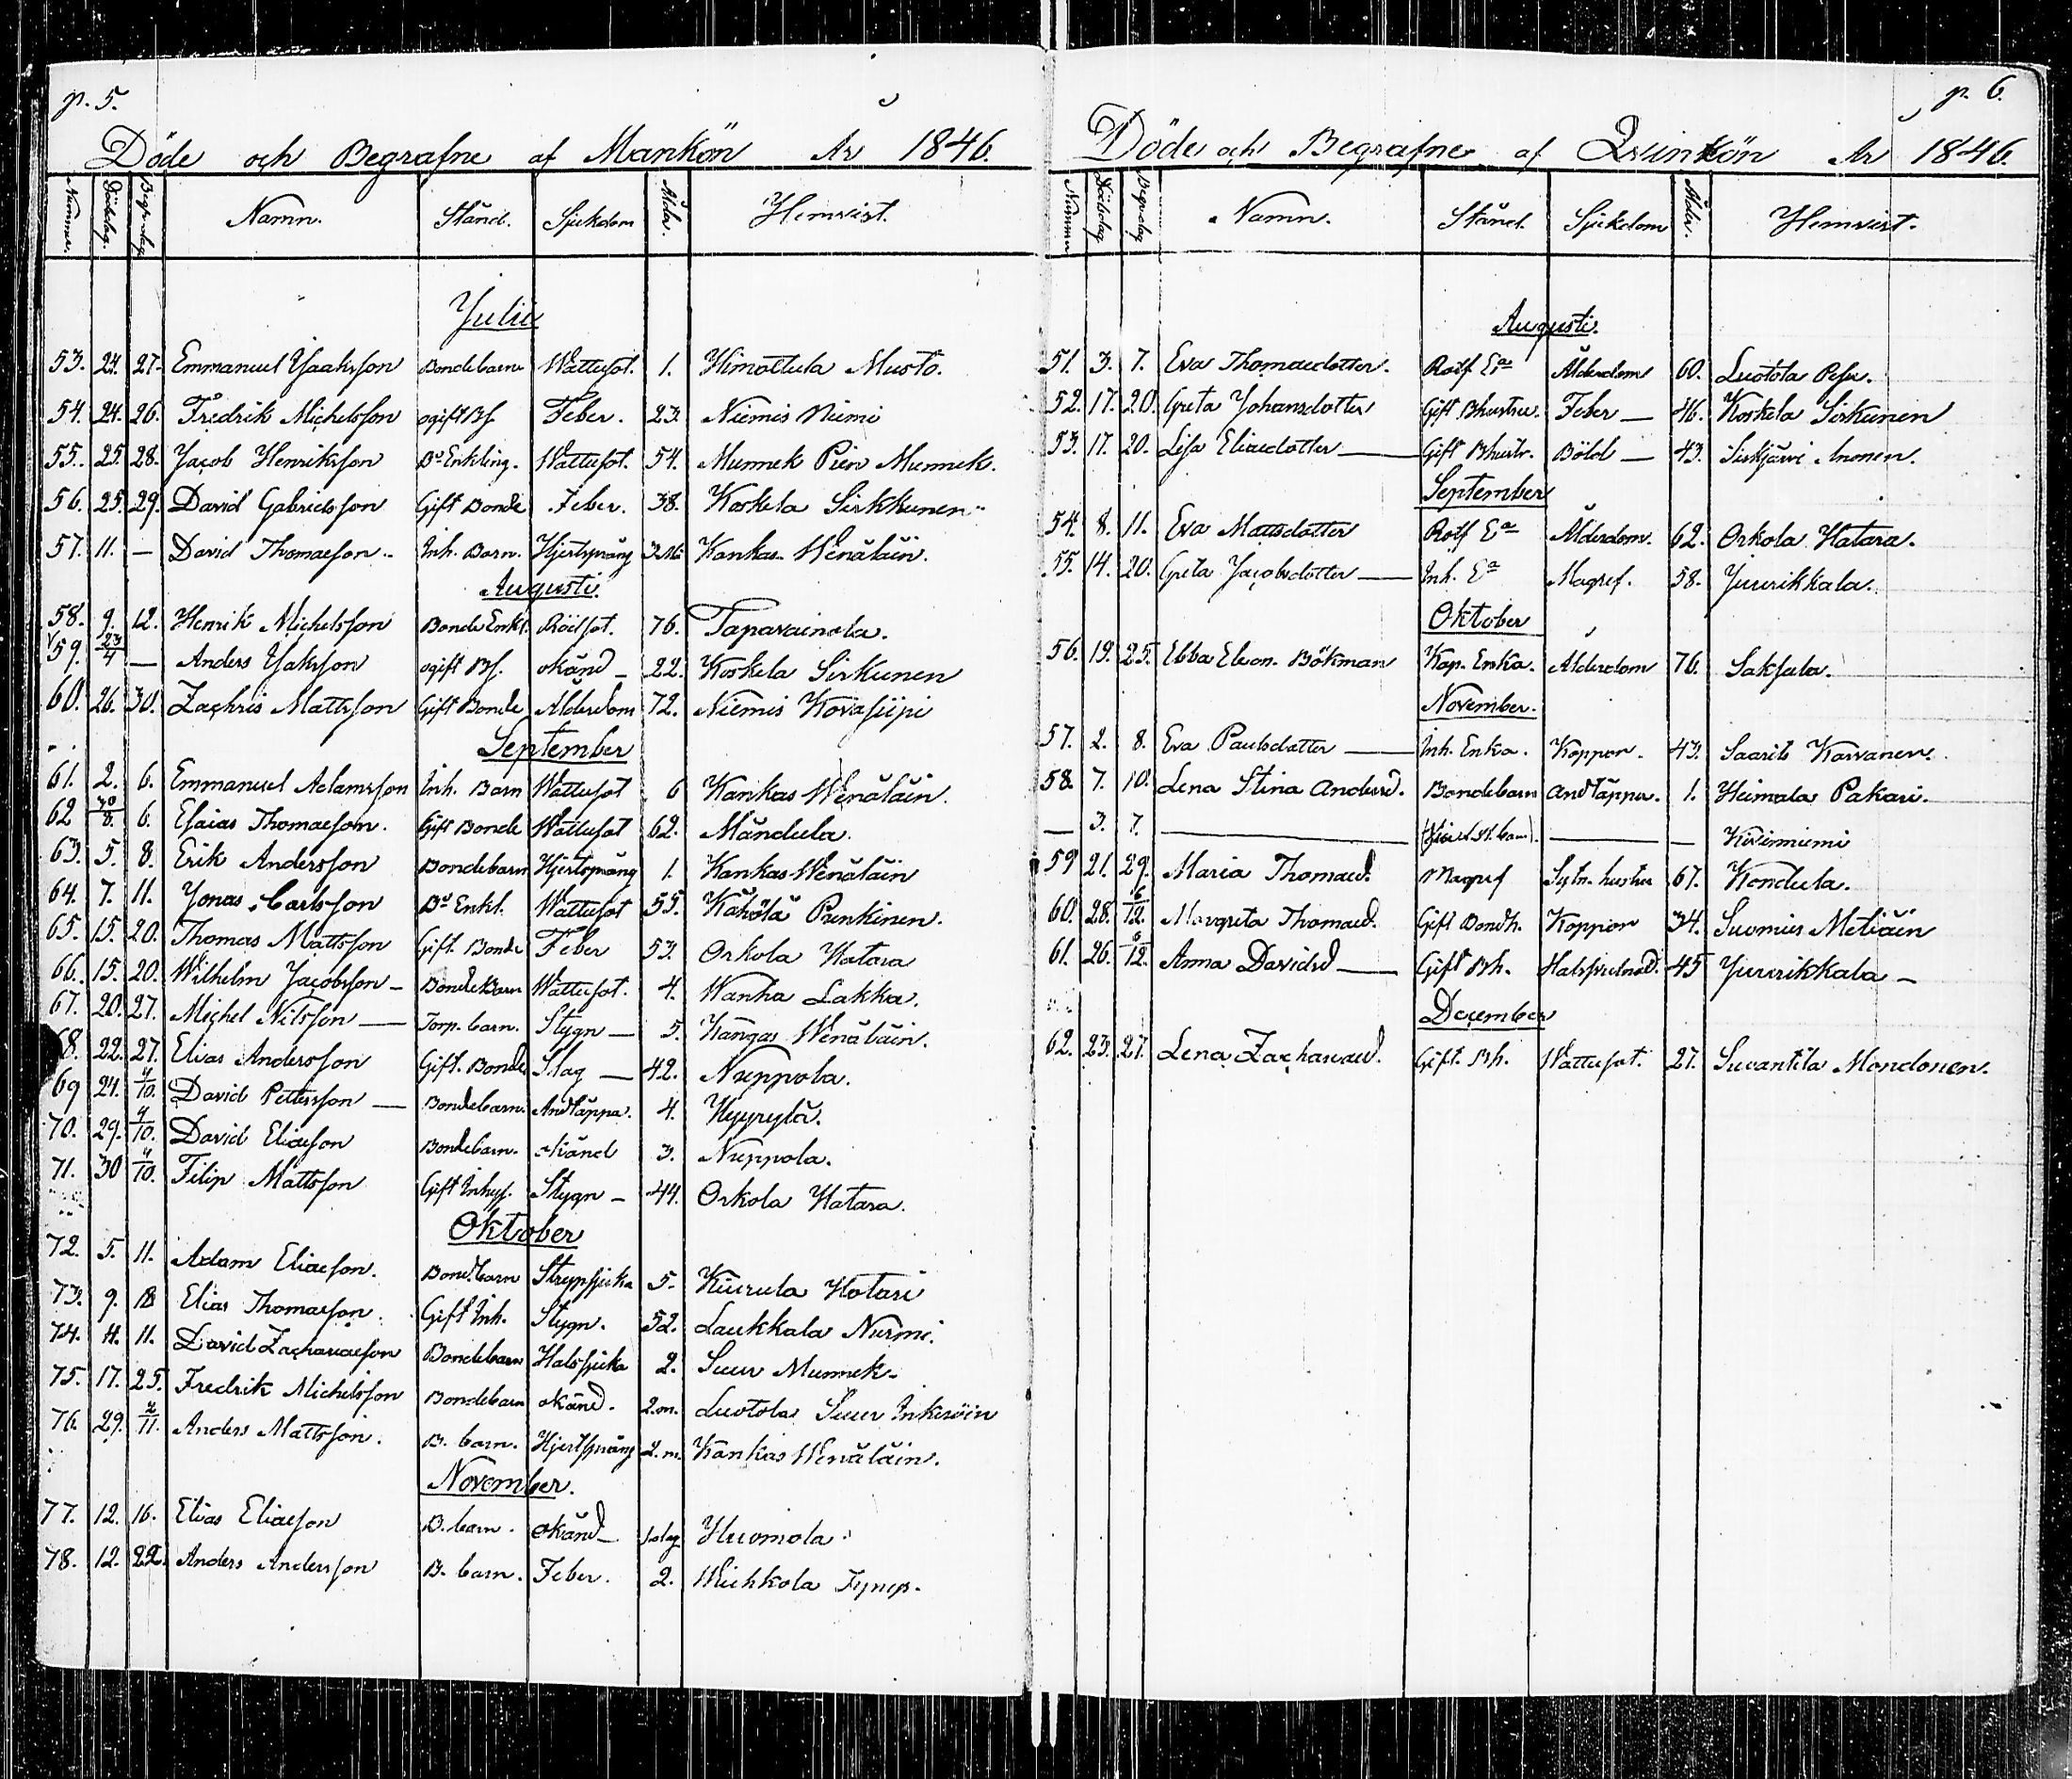 p. 5.
Döde och Begrafne af Mankön År 1846.
Nummer. Dödsdag. Begr.dag Namn. Stånd. Sjukdom Ålder. Hemvist.
Julii
53. 24. 27. Emmanuel Jaaksson Bondebarn Wattusot. 1. Himottula Musto.
54. 24. 26. Fredrik Michelsson ogift Bs. Feber. 23. Niemis Niemi
55. 25. 28. Jacob Henriksson Bde Enkling. Wattusot. 54. Munnek Pien Munnek.
56. 25. 29. David Gabrielsson Gift Bonde Feber. 38. Koskela Sirkkunen
57. 11. — David Thomasson. Inh. Barn. Hjertsprång 3 M. Kankas Wenäläin.
Augusti.
58. 9. 12. Henrik Michelsson Bonde Enkl. Rödsot. 76. Tapavainola.
59. 23/4 — Anders Jaksson ogift Bs. okänd — 22. Koskela Sirkunen
60. 26. 30. Zachris Mattsson Gift Bonde Ålderdom 72. Niemis Kovasiipi
September
61. 2. 6. Emmanuel Adamsson Inh. Barn Wattusot 6 Kankas Wenäläin.
62 30/8. 6. Esaias Thomasson. Gift Bonde Wattusot 62. Måndula.
63. 5. 8. Erik Andersson Bondebarn Hjertsprång 1. Kankas Wenäläin
64. 7. 11. Jonas Carlsson Bde Enkl. Wattusot 55. Kähölä Punkinen.
65. 15. 20. Thomas Mattsson Gift Bonde Feber 53. Orkola Hatara
66. 15. 20. Wilhelm Jacobsson — Bonde Barn Wattusot. 4. Wanha Lakka.
67. 20. 27. Michel Nilsson — Torp. barn. Stygn — 5. Kangas Wenäläin.
68. 22. 27. Elias Andersson Gift. Bonde Slag — 42. Nuppola.
69 24. 4/10. David Pettersson — Bondebarn. Andtäppa. 4. Hyyrylä.
70. 29. 4/10. David Eliasson Bondebarn. okänd 3. Nuppola.
71. 30 4/10. Filip Mattsson Gift Inhys. Stygn — 44. Orkola Hatara.
Oktober
72. 5. 11. Adam Eliasson. Bond.barn Strypsjuka 5. Kiurula Hotari
73. 9. 18 Elias Thomasson. Gift Inh. Stygn. 52. Laukkala Nurmi.
74. 4. 11. David Zachariasson Bondebarn Halssjuka 2. Suur Munnek.
75. 17. 25. Fredrik Michelsson Bondebarn okänd. 2.m. Luotola Suur Inkeröin
76. 29. 2/11. Anders Mattsson. B. barn. Hjertsprång 2.m. Kankas Wenäläin.
November.
77. 12. 16. Elias Eliasson B. barn. okänd — 1.dag Huomola
78. 12. 22. Anders Andersson B. barn. Feber. 2. Wichkola
p. 6.
Döde och Begrafne af Qvinkön År 1846.
Nummer Dödsdag Begr.dag Namn. Stånd. Sjukdom Ålder. Hemvist.
Augusti.
51. 3. 7. Eva Thomasdotter. Rotf Ea Ålderdom 60. Luotola Pesu.
52. 17. 20. Greta Johansdotter Gift Bhustru. Feber — 46. Koskela Sirkunen
53. 17. 20. Lisa Eliasdotter — Gift Bhustr. Böld — 43. Sirkjärvi Inonen.
September
54. 8. 11. Eva Mattsdotter Rotf Ea Ålderdom. 62. Orkola Hatara.
55. 14. 20. Greta Jacobsdotter — Inh. Ea Magref. 58. Jurvikkala.
Oktober
56. 19. 25. Ebba Eleon. Bökman Kap. Enka. Ålderdom 76. Saksala.
November.
57. 2. 8. Eva Paulsdotter — Inh. Enka. Koppor. 43. Saaris Karvanen.
58. 7. 10. Lena Stina Andersd. Bondebarn Andtäppa. 1. Heimala Pakari.
— 3. 7. — — — Kiviniemi
59 21. 29. Maria Thomasd. Magref Sytn. hustru 67. Kondula.
60. 28. 6/12. Margreta Thomasd. Gift Bondh. Koppor 34. Suomus Metiäin
61. 26. 6/12 Anna Davidsd — Gift Bh. 45 Jurvikkala —
December
62. 23. 27. Lena Zachariasd. Gift. Bh. Wattusot. 27. Suvantila Mondonen.